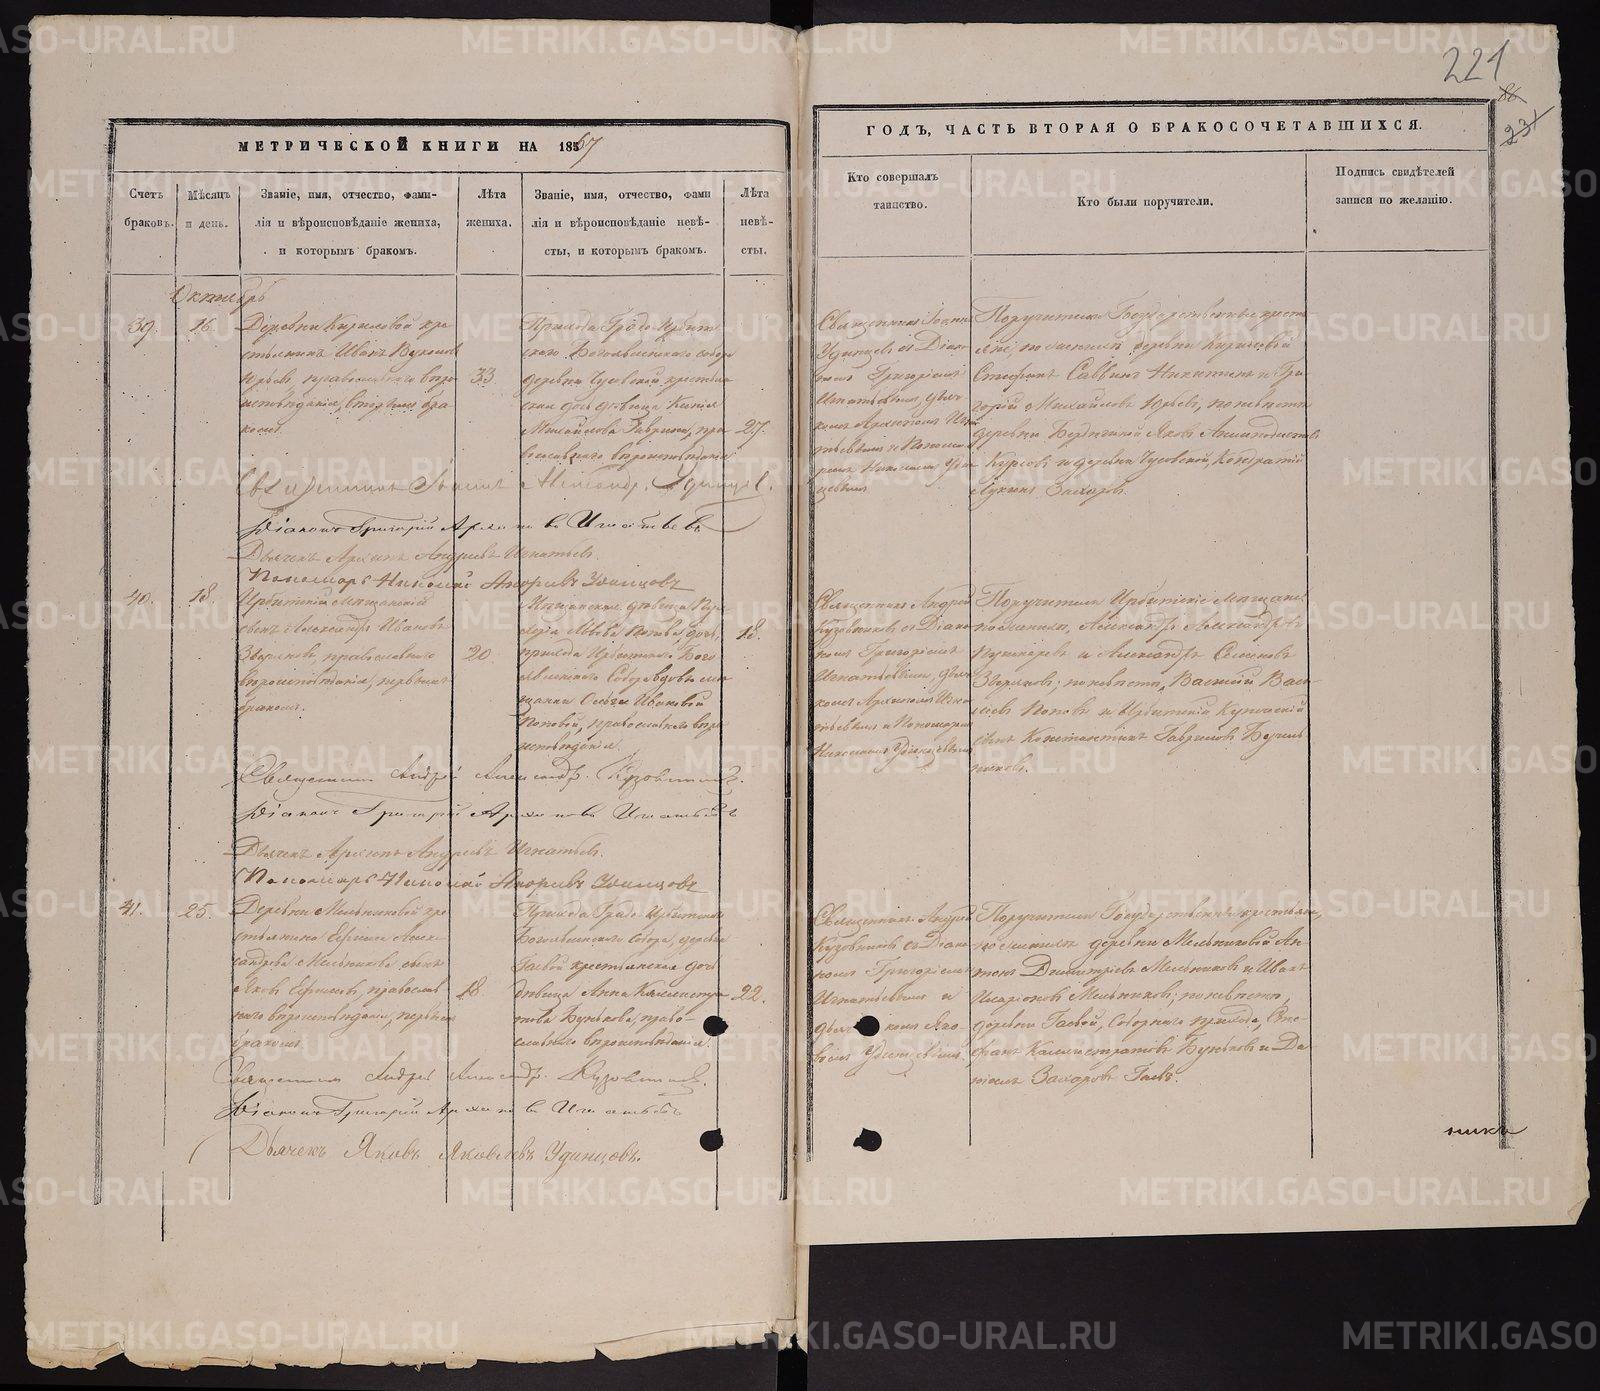 221
86
231
МЕТРИЧЕСКОЙ КНИГИ НА 1867
ГОДЪ, ЧАСТЬ ВТОРАЯ О БРАКОСОЧЕТАВШИХСЯ.
Счетъ браковъ.
Мѣсяцъ и день.
Званіе, имя, отчество, фами-
лія и вѣроисповѣданіе жениха,
и которымъ бракомъ.
Лѣта жениха.
Званіе, имя, отчество, фами
лія и вѣроисповѣданіе невѣ-
сты, и которымъ бракомъ.
Лѣта невѣ-
сты.
Кто совершалъ
таинство.
Кто были поручители.
Подпись свидѣтелей
записи по желанію.
Октябрь
39.
16.
Деревни Кириловой кре
стьянинъ Иванъ
Юрьевъ, православнаго вѣро
исповѣданія, вторымъ бра
комъ.
33.
Прихода Градо Ирбит
скаго Богоявленскаго собора
деревни Чусовской крестьян
ская дочь дѣвица Ксенія
Михайлова Гаврина, пра
вославнаго вѣроисповѣданія
27.
Священникъ Іоаннъ
Удинцевъ съ Діако
номъ Григоріемъ
Игнатьевымъ, дьяч
комъ Архипомъ Игна
тьевымъ и Понома
ремъ Николаемъ Удин
цевымъ
Поручители Государственные кресть
яне, по женихѣ деревни Кириловой
Стефанъ Саввинъ Никитинъ и Гри
горій Михайловъ Юрьевъ, по невѣстѣ
деревни Бердюгиной Яковъ
Курсовъ и деревни Чусовской, Кондратій
Лукинъ Захаровъ
Священникъ Іоаннъ Александр. Удинцев.
Діаконъ Григорій Архиповъ Игнатьевъ
Дьячекъ Архипъ Андреевъ Игнатьевъ.
Пономарь Николай Андреевъ Удинцовъ
40.
18.
Ирбитскій мѣщанскій
сынъ Александръ Ивановъ
Звѣряковъ, православнаго
вѣроисповѣданія, первымъ
бракомъ.
20.
Мѣщанская дѣвица
Львова Попова, дочь,
прихода Ирбитскаго Бого
явленскаго Собора вдовы мѣ
щанки Ольги Ивановой
Поповой, православнаго вѣро
исповѣданія.
18.
Священникъ Андрей
Кузовниковъ съ Діако
номъ Григоріемъ
Игнатьевымъ, дьяч
комъ Архипомъ Игна
тьевымъ и Пономаремъ
Николаемъ Удинцевымъ
Поручители Ирбитскіе мѣщане
по женихѣ, Александръ Александровъ
и Александръ Семеновъ
Звѣряковъ; по невѣстѣ, Василій Васи-
льевъ Поповъ и Ирбитскій купеческій
сынъ Константинъ Гавриловъ
Священникъ Андрей Александр. Кузовников.
Діаконъ Григорій Архиповъ Игнатьевъ
Дьячекъ Архипъ Андреевъ Игнатьевъ.
Пономарь Николай Андреевъ Удинцовъ
41.
25.
Деревни Мельниковой кре
стьянина Ефима Алек
сандрова Мельникова сынъ
Яковъ Ефимовъ, православ
наго вѣроисповѣданія, первымъ
бракомъ.
18.
Прихода Градо Ирбитскаго
Богоявленскаго Собора, деревни
Гаевой крестьянская дочь
дѣвица Анна Каллистра
това Бунькова, право-
славнаго вѣроисповѣданія.
22.
Священникъ Андрей
Кузовниковъ съ Діако
номъ Григоріемъ
Игнатьевымъ и
дьячкомъ Яко
вомъ Удинцевымъ.
Поручители Государственные крестьяне,
по женихѣ деревни Мельниковой Ан
тонъ Димитріевъ Мельниковъ и Иванъ
Иларіоновъ Мельниковъ; по невѣстѣ,
деревни Гаевой, Соборнаго прихода, Сте
фанъ Каллистратовъ Буньковъ и Да
ніилъ Захаровъ Гаевъ.
Священникъ Андрей Александр. Кузовников.
Діаконъ Григорій Архиповъ Игнатьевъ
Дьячекъ Яковъ Яковлевъ Удинцовъ.
никъ